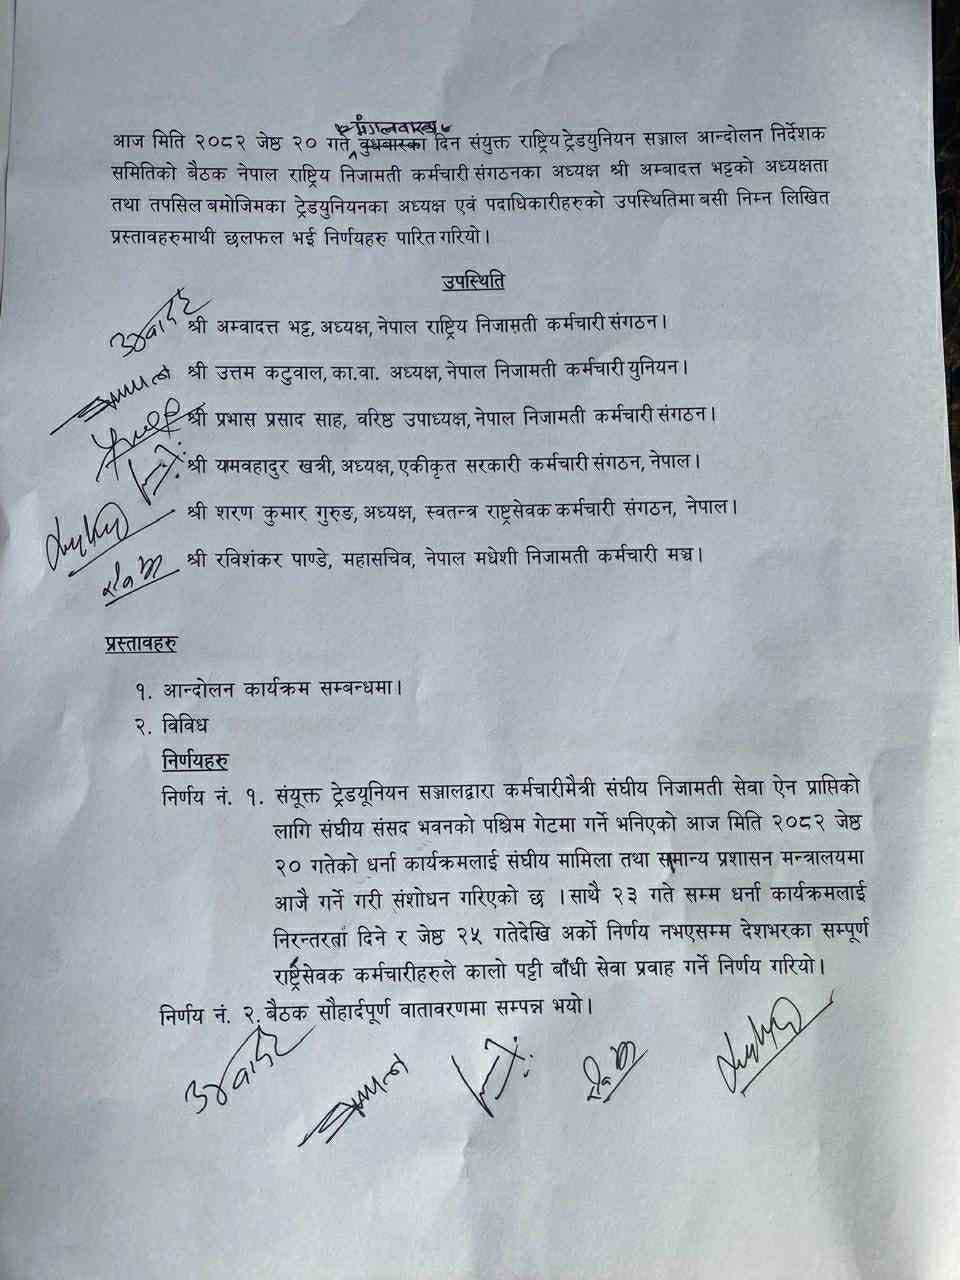 मंगलवारका
आज मिति २०८२ जेष्ठ २० गते बुधबारका दिन संयुक्त राष्ट्रिय ट्रेडयुनियन सञ्जाल आन्दोलन निर्देशक
समितिको बैठक नेपाल राष्ट्रिय निजामती कर्मचारी संगठनका अध्यक्ष श्री अम्बादत्त भट्टको अध्यक्षता
तथा तपसिल बमोजिमका ट्रेडयुनियनका अध्यक्ष एवं पदाधिकारीहरुको उपस्थितिमा बसी निम्न लिखित
प्रस्तावहरुमाथी छलफल भई निर्णयहरु पारित गरियो।
उपस्थिति
श्री अम्वादत्त भट्ट, अध्यक्ष, नेपाल राष्ट्रिय निजामती कर्मचारी संगठन।
श्री उत्तम कटुवाल, का.वा. अध्यक्ष, नेपाल निजामती कर्मचारी युनियन।
श्री प्रभास प्रसाद साह, वरिष्ठ उपाध्यक्ष, नेपाल निजामती कर्मचारी संगठन।
श्री यामवहादुर खत्री, अध्यक्ष, एकीकृत सरकारी कर्मचारी संगठन, नेपाल।
श्री शरण कुमार गुरुङ, अध्यक्ष, स्वतन्त्र राष्ट्रसेवक कर्मचारी संगठन, नेपाल।
श्री रविशंकर पाण्डे, महासचिव, नेपाल मधेशी निजामती कर्मचारी मञ्च।
प्रस्तावहरु
१. आन्दोलन कार्यक्रम सम्बन्धमा।
२. विविध
निर्णयहरु
निर्णय नं. १. संयूक्त ट्रेडयूनियन सञ्जालद्वारा कर्मचारीमैत्री संघीय निजामती सेवा ऐन प्राप्तिको
लागि संघीय संसद भवनको पश्चिम गेटमा गर्ने भनिएको आज मिति २०८२ जेष्ठ
२० गतेको धर्ना कार्यक्रमलाई संघीय मामिला तथा सामान्य प्रशासन मन्त्रालयमा
आजै गर्ने गरी संशोधन गरिएको छ । साथै २३ गते सम्म धर्ना कार्यक्रमलाई
निरन्तरता दिने र जेष्ठ २५ गतेदेखि अर्को निर्णय नभएसम्म देशभरका सम्पूर्ण
राष्ट्रसेवक कर्मचारीहरुले कालो पट्टी बाँधी सेवा प्रवाह गर्ने निर्णय गरियो।
निर्णय नं. २. बैठक सौहार्दपूर्ण वातावरणमा सम्पन्न भयो।